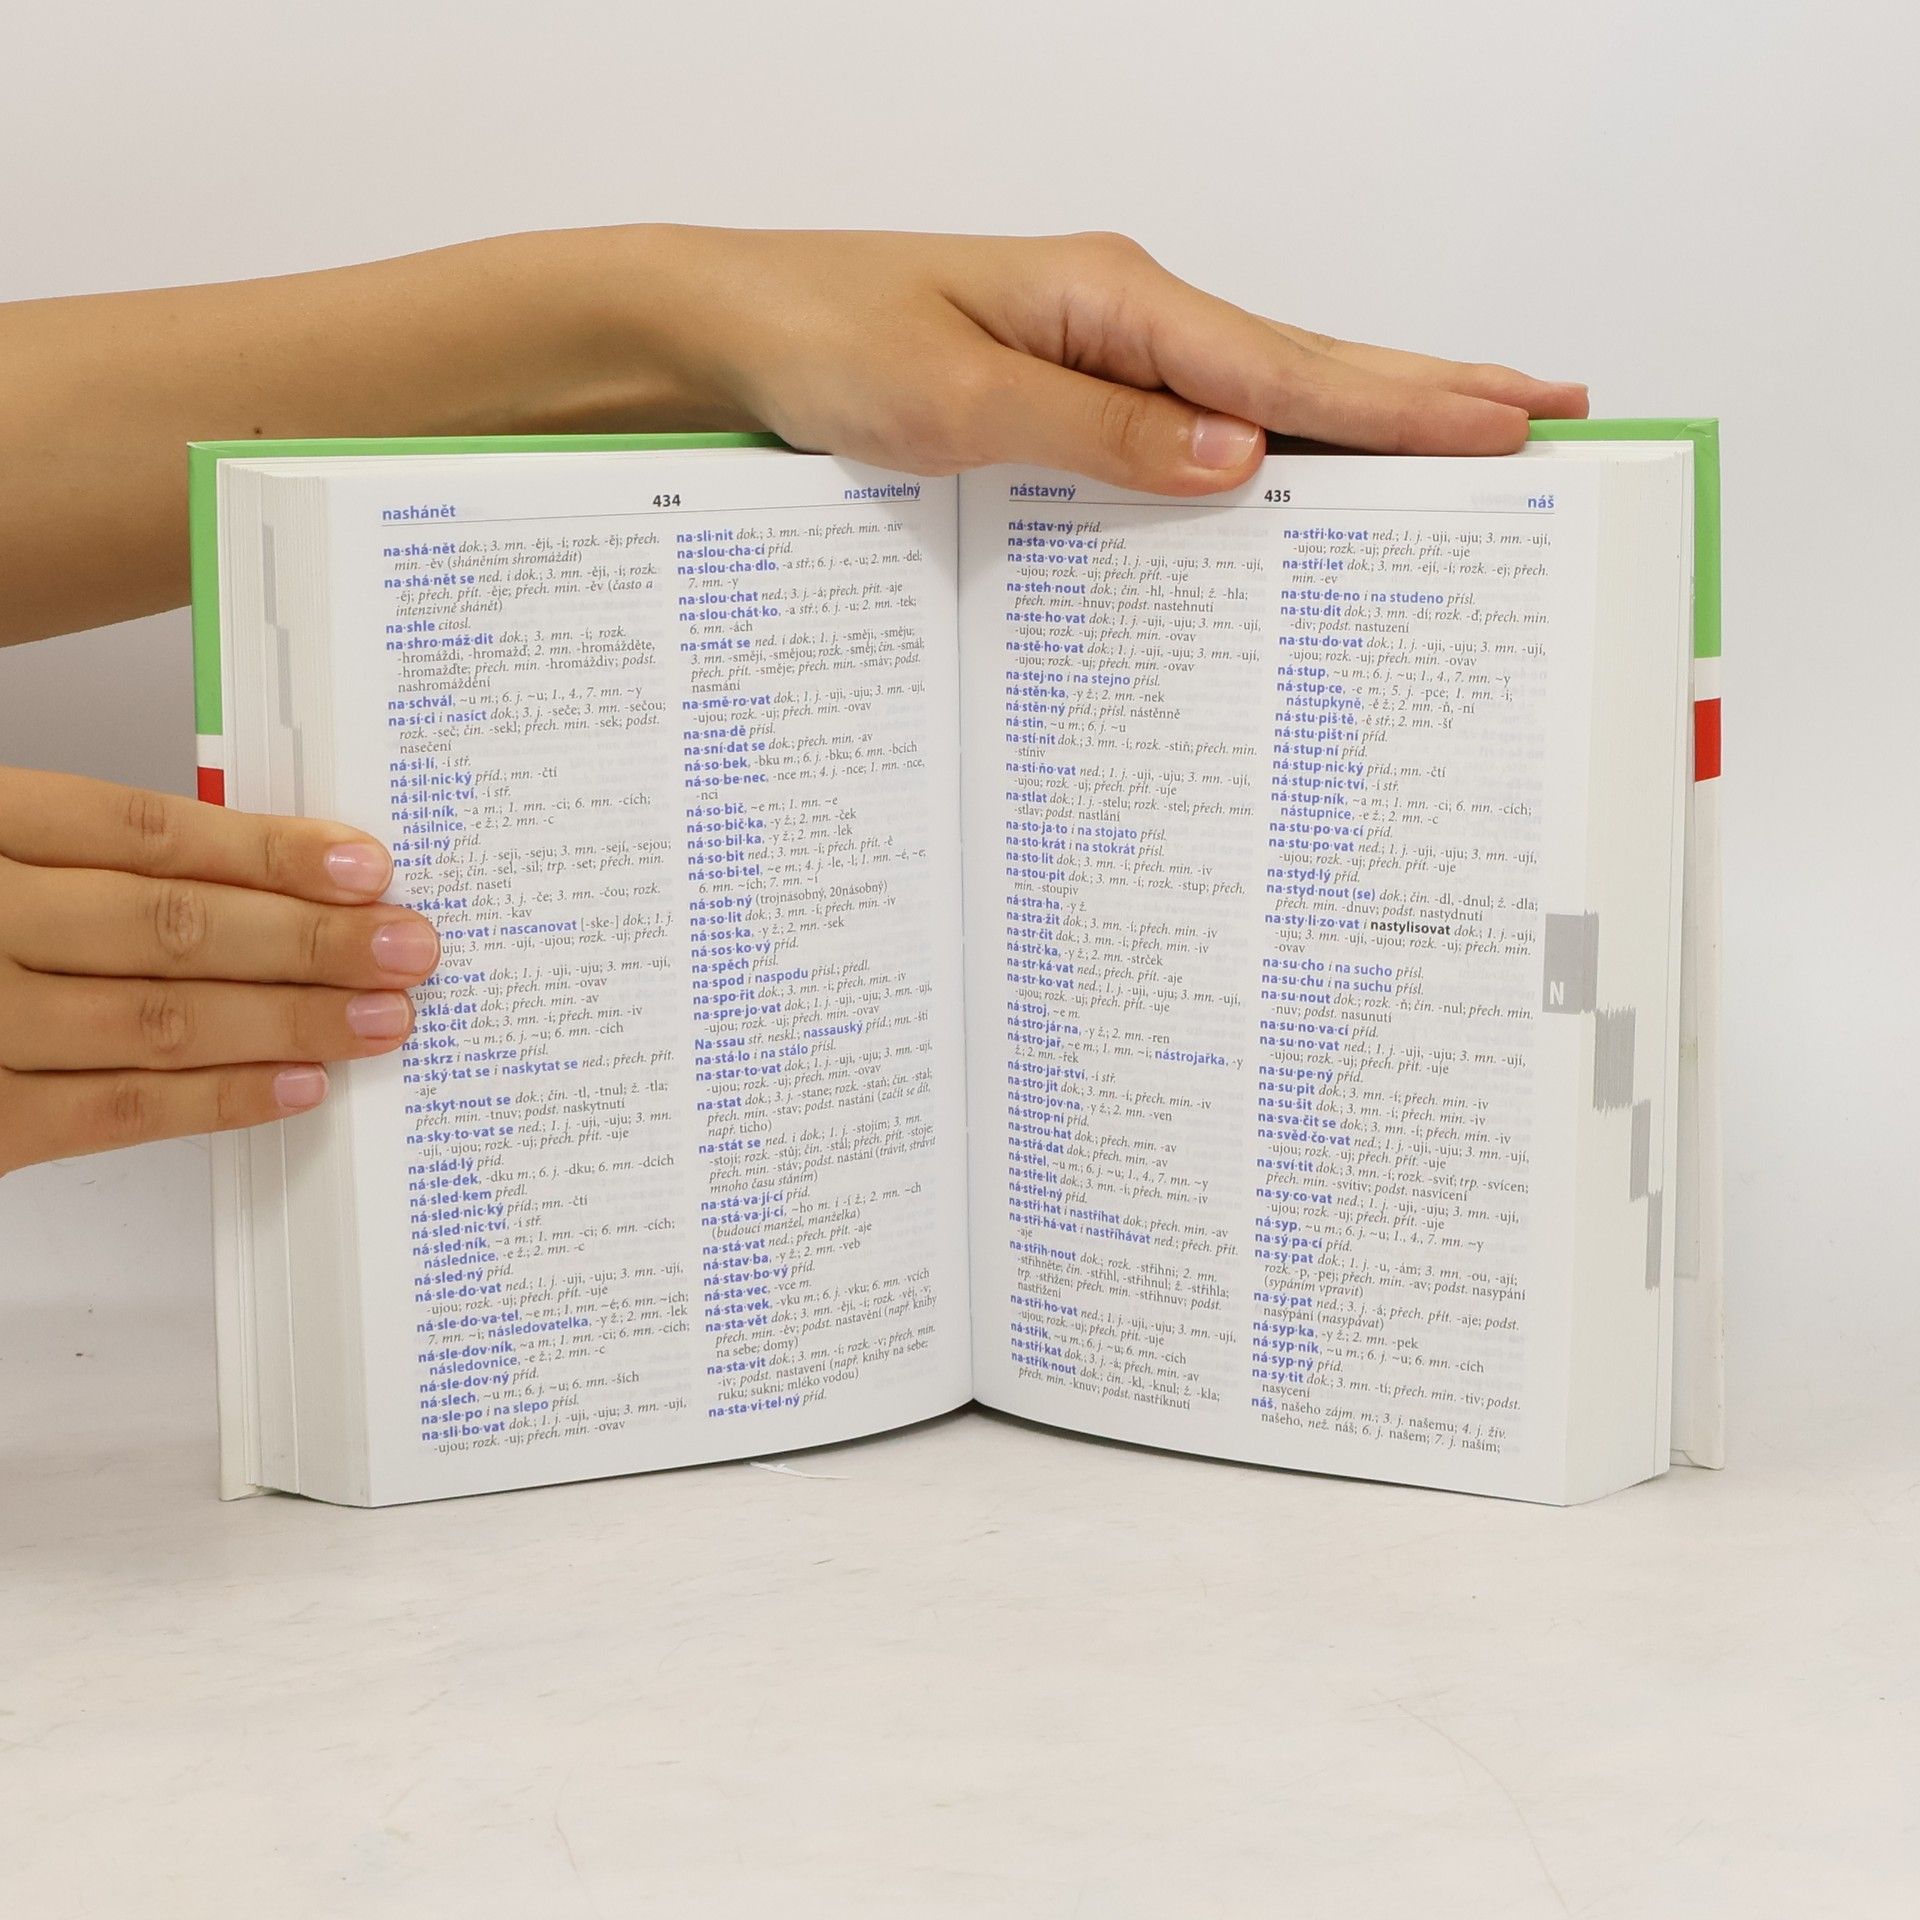 nashánět 434 nastavitelný
na·shá·nět dok.; 3. mn. -ějí, -í; rozk. -ěj; přech.
min. -ěv (sháněním shromáždit)
na·shá·nět se ned. i dok.; 3. mn. -ějí, -í; rozk.
-ěj; přech. přít. -ěje; přech. min. -ěv (často a
intenzivně shánět)
na·shle citosl.
na·shro·máž·dit dok.; 3. mn. -í; rozk.
-hromáždi, -hromažď; 2. mn. -hromážděte,
-hromažďte; přech. min. -hromáždiv; podst.
nashromáždění
na·schvál, ~u m.; 6. j. ~u; 1., 4., 7. mn. ~y
na·sí·ci i nasíct dok.; 3. j. -seče; 3. mn. -sečou;
rozk. -seč; čin. -sekl; přech. min. -sek; podst.
nasečení
ná·si·lí, -í stř.
ná·sil·nic·ký příd.; mn. -čtí
ná·sil·nic·tví, -í stř.
ná·sil·ník, ~a m.; 1. mn. -ci; 6. mn. -cích;
násilnice, -e ž.; 2. mn. -c
ná·sil·ný příd.
na·sít dok.; 1. j. -seji, -seju; 3. mn. -sejí, -sejou;
rozk. -sej; čin. -sel, -sil; trp. -set; přech. min.
-sev; podst. nasetí
ská·kat dok.; 3. j. -če; 3. mn. -čou; rozk.
přech. min. -kav
no·vat i nascanovat [-ske-] dok.; 1. j.
uju; 3. mn. -ují, -ujou; rozk. -uj; přech.
-ovav
co·vat dok.; 1. j. -uji, -uju; 3. mn. -ují,
-ujou; rozk. -uj; přech. min. -ovav
sklá·dat dok.; přech. min. -av
sko·čit dok.; 3. mn. -í; přech. min. -iv
ná·skok, ~u m.; 6. j. ~u; 6. mn. -cích
na·skrz i naskrze přísl.
na·ský·tat se i naskytat se ned.; přech. přít.
-aje
na·skyt·nout se dok.; čin. -tl, -tnul; ž. -tla;
přech. min. -tnuv; podst. naskytnutí
na·sky·to·vat se ned.; 1. j. -uji, -uju; 3. mn.
-ují, -ujou; rozk. -uj; přech. přít. -uje
na·slád·lý příd.
ná·sle·dek, -dku m.; 6. j. -dku; 6. mn. -dcích
ná·sled·kem předl.
ná·sled·nic·ký příd.; mn. -čtí
ná·sled·nic·tví, -í stř.
ná·sled·ník, ~a m.; 1. mn. -ci; 6. mn. -cích;
následnice, -e ž.; 2. mn. -c
ná·sled·ný příd.
ná·sle·do·vat ned.; 1. j. -uji, -uju; 3. mn. -ují,
-ujou; rozk. -uj; přech. přít. -uje
ná·sle·do·va·tel, ~e m.; 1. mn. ~é; 6. mn. ~ích;
7. mn. ~i; následovatelka, -y ž.; 2. mn. -lek
ná·sle·dov·ník, ~a m.; 1. mn. -ci; 6. mn. -cích;
následovnice, -e ž.; 2. mn. -c
ná·sle·dov·ný příd.
ná·slech, ~u m.; 6. j. ~u; 6. mn. -ších
na·sle·po i na slepo přísl.
na·sli·bo·vat dok.; 1. j. -uji, -uju; 3. mn. -ují,
-ujou; rozk. -uj; přech. min. -ovav
na·sli·nit dok.; 3. mn. -ní; přech. min. -niv
na·slou·cha·cí příd.
na·slou·cha·dlo, -a stř.; 6. j. -e, -u; 2. mn. -del;
7. mn. -y
na·slou·chat ned.; 3. j. -á; přech. přít. -aje
na·slou·chát·ko, -a stř.; 6. j. -u; 2. mn. -tek;
6. mn. -ách
na·smát se ned. i dok.; 1. j. -směji, -směju;
3. mn. -smějí, -smějou; rozk. -směj; čin. -smál;
přech. přít. -směje; přech. min. -smáv; podst.
nasmání
na·smě·ro·vat dok.; 1. j. -uji, -uju; 3. mn. -ují,
-ujou; rozk. -uj; přech. min. -ovav
na·sna·dě přísl.
na·sní·dat se dok.; přech. min. -av
ná·so·bek, -bku m.; 6. j. -bku; 6. mn. -bcích
ná·so·be·nec, -nce m.; 4. j. -nce; 1. mn. -nce,
-nci
ná·so·bič, ~e m.; 1. mn. ~e
ná·so·bič·ka, -y ž.; 2. mn. -ček
ná·so·bil·ka, -y ž.; 2. mn. -lek
ná·so·bit ned.; 3. mn. -í; přech. přít. -ě
ná·so·bi·tel, ~e m.; 4. j. -le, -l; 1. mn. ~é, ~e;
6. mn. ~ích; 7. mn. ~i
ná·sob·ný (trojnásobný, 20násobný)
na·so·lit dok.; 3. mn. -í; přech. min. -iv
ná·sos·ka, -y ž.; 2. mn. -sek
ná·sos·ko·vý příd.
na·spěch přísl.
na·spod i naspodu přísl.; předl.
na·spo·řit dok.; 3. mn. -í; přech. min. -iv
na·spre·jo·vat dok.; 1. j. -uji, -uju; 3. mn. -ují,
-ujou; rozk. -uj; přech. min. -ovav
Na·ssau stř. neskl.; nassauský příd.; mn. -ští
na·stá·lo i na stálo přísl.
na·star·to·vat dok.; 1. j. -uji, -uju; 3. mn. -ují,
-ujou; rozk. -uj; přech. min. -ovav
na·stat dok.; 3. j. -stane; rozk. -staň; čin. -stal;
přech. min. -stav; podst. nastání (začít se dít,
např. ticho)
na·stát se ned. i dok.; 1. j. -stojím; 3. mn.
-stojí; rozk. -stůj; čin. -stál; přech. přít. -stoje;
přech. min. -stáv; podst. nastání (trávit, strávit
mnoho času stáním)
na·stá·va·jí·cí příd.
na·stá·va·jí·cí, ~ho m. i -í ž.; 2. mn. ~ch
(budoucí manžel, manželka)
na·stá·vat ned.; přech. přít. -aje
ná·stav·ba, -y ž.; 2. mn. -veb
ná·stav·bo·vý příd.
ná·sta·vec, -vce m.
ná·sta·vek, -vku m.; 6. j. -vku; 6. mn. -vcích
na·sta·vět dok.; 3. mn. -ějí, -í; rozk. -věj, -v;
přech. min. -ěv; podst. nastavění (např. knihy
na sebe; domy)
na·sta·vit dok.; 3. mn. -í; rozk. -v; přech. min.
-iv; podst. nastavení (např. knihy na sebe;
ruku; sukni; mléko vodou)
na·sta·vi·tel·ný příd.
nástavný 435 náš
ná·stav·ný příd.
na·sta·vo·va·cí příd.
na·sta·vo·vat ned.; 1. j. -uji, -uju; 3. mn. -ují,
-ujou; rozk. -uj; přech. přít. -uje
na·steh·nout dok.; čin. -hl, -hnul; ž. -hla;
přech. min. -hnuv; podst. nastehnutí
na·ste·ho·vat dok.; 1. j. -uji, -uju; 3. mn. -ují,
-ujou; rozk. -uj; přech. min. -ovav
na·stě·ho·vat dok.; 1. j. -uji, -uju; 3. mn. -ují,
-ujou; rozk. -uj; přech. min. -ovav
na·stej·no i na stejno přísl.
ná·stěn·ka, -y ž.; 2. mn. -nek
ná·stěn·ný příd.; přísl. nástěnně
ná·stin, ~u m.; 6. j. ~u
na·stí·nit dok.; 3. mn. -í; rozk. -stiň; přech. min.
-stíniv
na·sti·ňo·vat ned.; 1. j. -uji, -uju; 3. mn. -ují,
-ujou; rozk. -uj; přech. přít. -uje
na·stlat dok.; 1. j. -stelu; rozk. -stel; přech. min.
-stlav; podst. nastlání
na·sto·ja·to i na stojato přísl.
na·sto·krát i na stokrát přísl.
na·sto·lit dok.; 3. mn. -í; přech. min. -iv
na·stou·pit dok.; 3. mn. -í; rozk. -stup; přech.
min. -stoupiv
ná·stra·ha, -y ž.
na·stra·žit dok.; 3. mn. -í; přech. min. -iv
na·str·čit dok.; 3. mn. -í; přech. min. -iv
ná·strč·ka, -y ž.; 2. mn. -strček
na·str·ká·vat ned.; přech. přít. -aje
na·str·ko·vat ned.; 1. j. -uji, -uju; 3. mn. -ují,
-ujou; rozk. -uj; přech. přít. -uje
ná·stroj, ~e m.
ná·stro·jár·na, -y ž.; 2. mn. -ren
ná·stro·jař, ~e m.; 1. mn. ~i; nástrojařka, -y
ž.; 2. mn. -řek
ná·stro·jař·ství, -í stř.
na·stro·jit dok.; 3. mn. -í; přech. min. -iv
ná·stro·jov·na, -y ž.; 2. mn. -ven
ná·strop·ní příd.
na·strou·hat dok.; přech. min. -av
na·střá·dat dok.; přech. min. -av
ná·střel, ~u m.; 6. j. ~u; 1., 4., 7. mn. ~y
na·stře·lit dok.; 3. mn. -í; přech. min. -iv
ná·střel·ný příd.
na·stří·hat i nastříhat dok.; přech. min. -av
na·stři·há·vat i nastříhávat ned.; přech. přít.
-aje
na·střih·nout dok.; rozk. -střihni; 2. mn.
-střihněte; čin. -střihl, -střihnul; ž. -střihla;
trp. -střižen; přech. min. -střihnuv; podst.
nastřižení
na·stři·ho·vat ned.; 1. j. -uji, -uju; 3. mn. -ují,
-ujou; rozk. -uj; přech. přít. -uje
ná·střik, ~u m.; 6. j. ~u; 6. mn. -cích
na·stří·kat dok.; 3. j. -á; přech. min. -av
na·střík·nout dok.; čin. -kl, -knul; ž. -kla;
přech. min. -knuv; podst. nastříknutí
na·stři·ko·vat ned.; 1. j. -uji, -uju; 3. mn. -ují,
-ujou; rozk. -uj; přech. přít. -uje
na·stří·let dok.; 3. mn. -ejí, -í; rozk. -ej; přech.
min. -ev
na·stu·de·no i na studeno přísl.
na·stu·dit dok.; 3. mn. -dí; rozk. -ď; přech. min.
-div; podst. nastuzení
na·stu·do·vat dok.; 1. j. -uji, -uju; 3. mn. -ují,
-ujou; rozk. -uj; přech. min. -ovav
ná·stup, ~u m.; 6. j. ~u; 1., 4., 7. mn. ~y
ná·stup·ce, -e m.; 5. j. -pce; 1. mn. -i;
nástupkyně, -ě ž.; 2. mn. -ň, -ní
ná·stu·piš·tě, -ě stř.; 2. mn. -šť
ná·stu·pišt·ní příd.
ná·stup·ní příd.
ná·stup·nic·ký příd.; mn. -čtí
ná·stup·nic·tví, -í stř.
ná·stup·ník, ~a m.; 1. mn. -ci; 6. mn. -cích;
nástupnice, -e ž.; 2. mn. -c
na·stu·po·va·cí příd.
na·stu·po·vat ned.; 1. j. -uji, -uju; 3. mn. -ují,
-ujou; rozk. -uj; přech. přít. -uje
na·styd·lý příd.
na·styd·nout (se) dok.; čin. -dl, -dnul; ž. -dla;
přech. min. -dnuv; podst. nastydnutí
na·sty·li·zo·vat i nastylisovat dok.; 1. j. -uji,
-uju; 3. mn. -ují, -ujou; rozk. -uj; přech. min.
-ovav
na·su·cho i na sucho přísl.
na·su·chu i na suchu přísl.
na·su·nout dok.; rozk. -ň; čin. -nul; přech. min.
-nuv; podst. nasunutí
na·su·no·va·cí příd.
na·su·no·vat ned.; 1. j. -uji, -uju; 3. mn. -ují,
-ujou; rozk. -uj; přech. přít. -uje
na·su·pe·ný příd.
na·su·pit dok.; 3. mn. -í; přech. min. -iv
na·su·šit dok.; 3. mn. -í; přech. min. -iv
na·sva·čit se dok.; 3. mn. -í; přech. min. -iv
na·svěd·čo·vat ned.; 1. j. -uji, -uju; 3. mn. -ují,
-ujou; rozk. -uj; přech. přít. -uje
na·sví·tit dok.; 3. mn. -í; rozk. -sviť; trp. -svícen;
přech. min. -svítiv; podst. nasvícení
na·sy·co·vat ned.; 1. j. -uji, -uju; 3. mn. -ují,
-ujou; rozk. -uj; přech. přít. -uje
ná·syp, ~u m.; 6. j. ~u; 1., 4., 7. mn. ~y
na·sý·pa·cí příd.
na·sy·pat dok.; 1. j. -u, -ám; 3. mn. -ou, -ají;
rozk. -p, -pej; přech. min. -av; podst. nasypání
(sypáním vpravit)
na·sý·pat ned.; 3. j. -á; přech. přít. -aje; podst.
nasýpání (nasypávat)
ná·syp·ka, -y ž.; 2. mn. -pek
ná·syp·ník, ~u m.; 6. j. ~u; 6. mn. -cích
ná·syp·ný příd.
na·sy·tit dok.; 3. mn. -tí; přech. min. -tiv; podst.
nasycení
náš, našeho zájm. m.; 3. j. našemu; 4. j. živ.
našeho, než. náš; 6. j. našem; 7. j. naším;
N